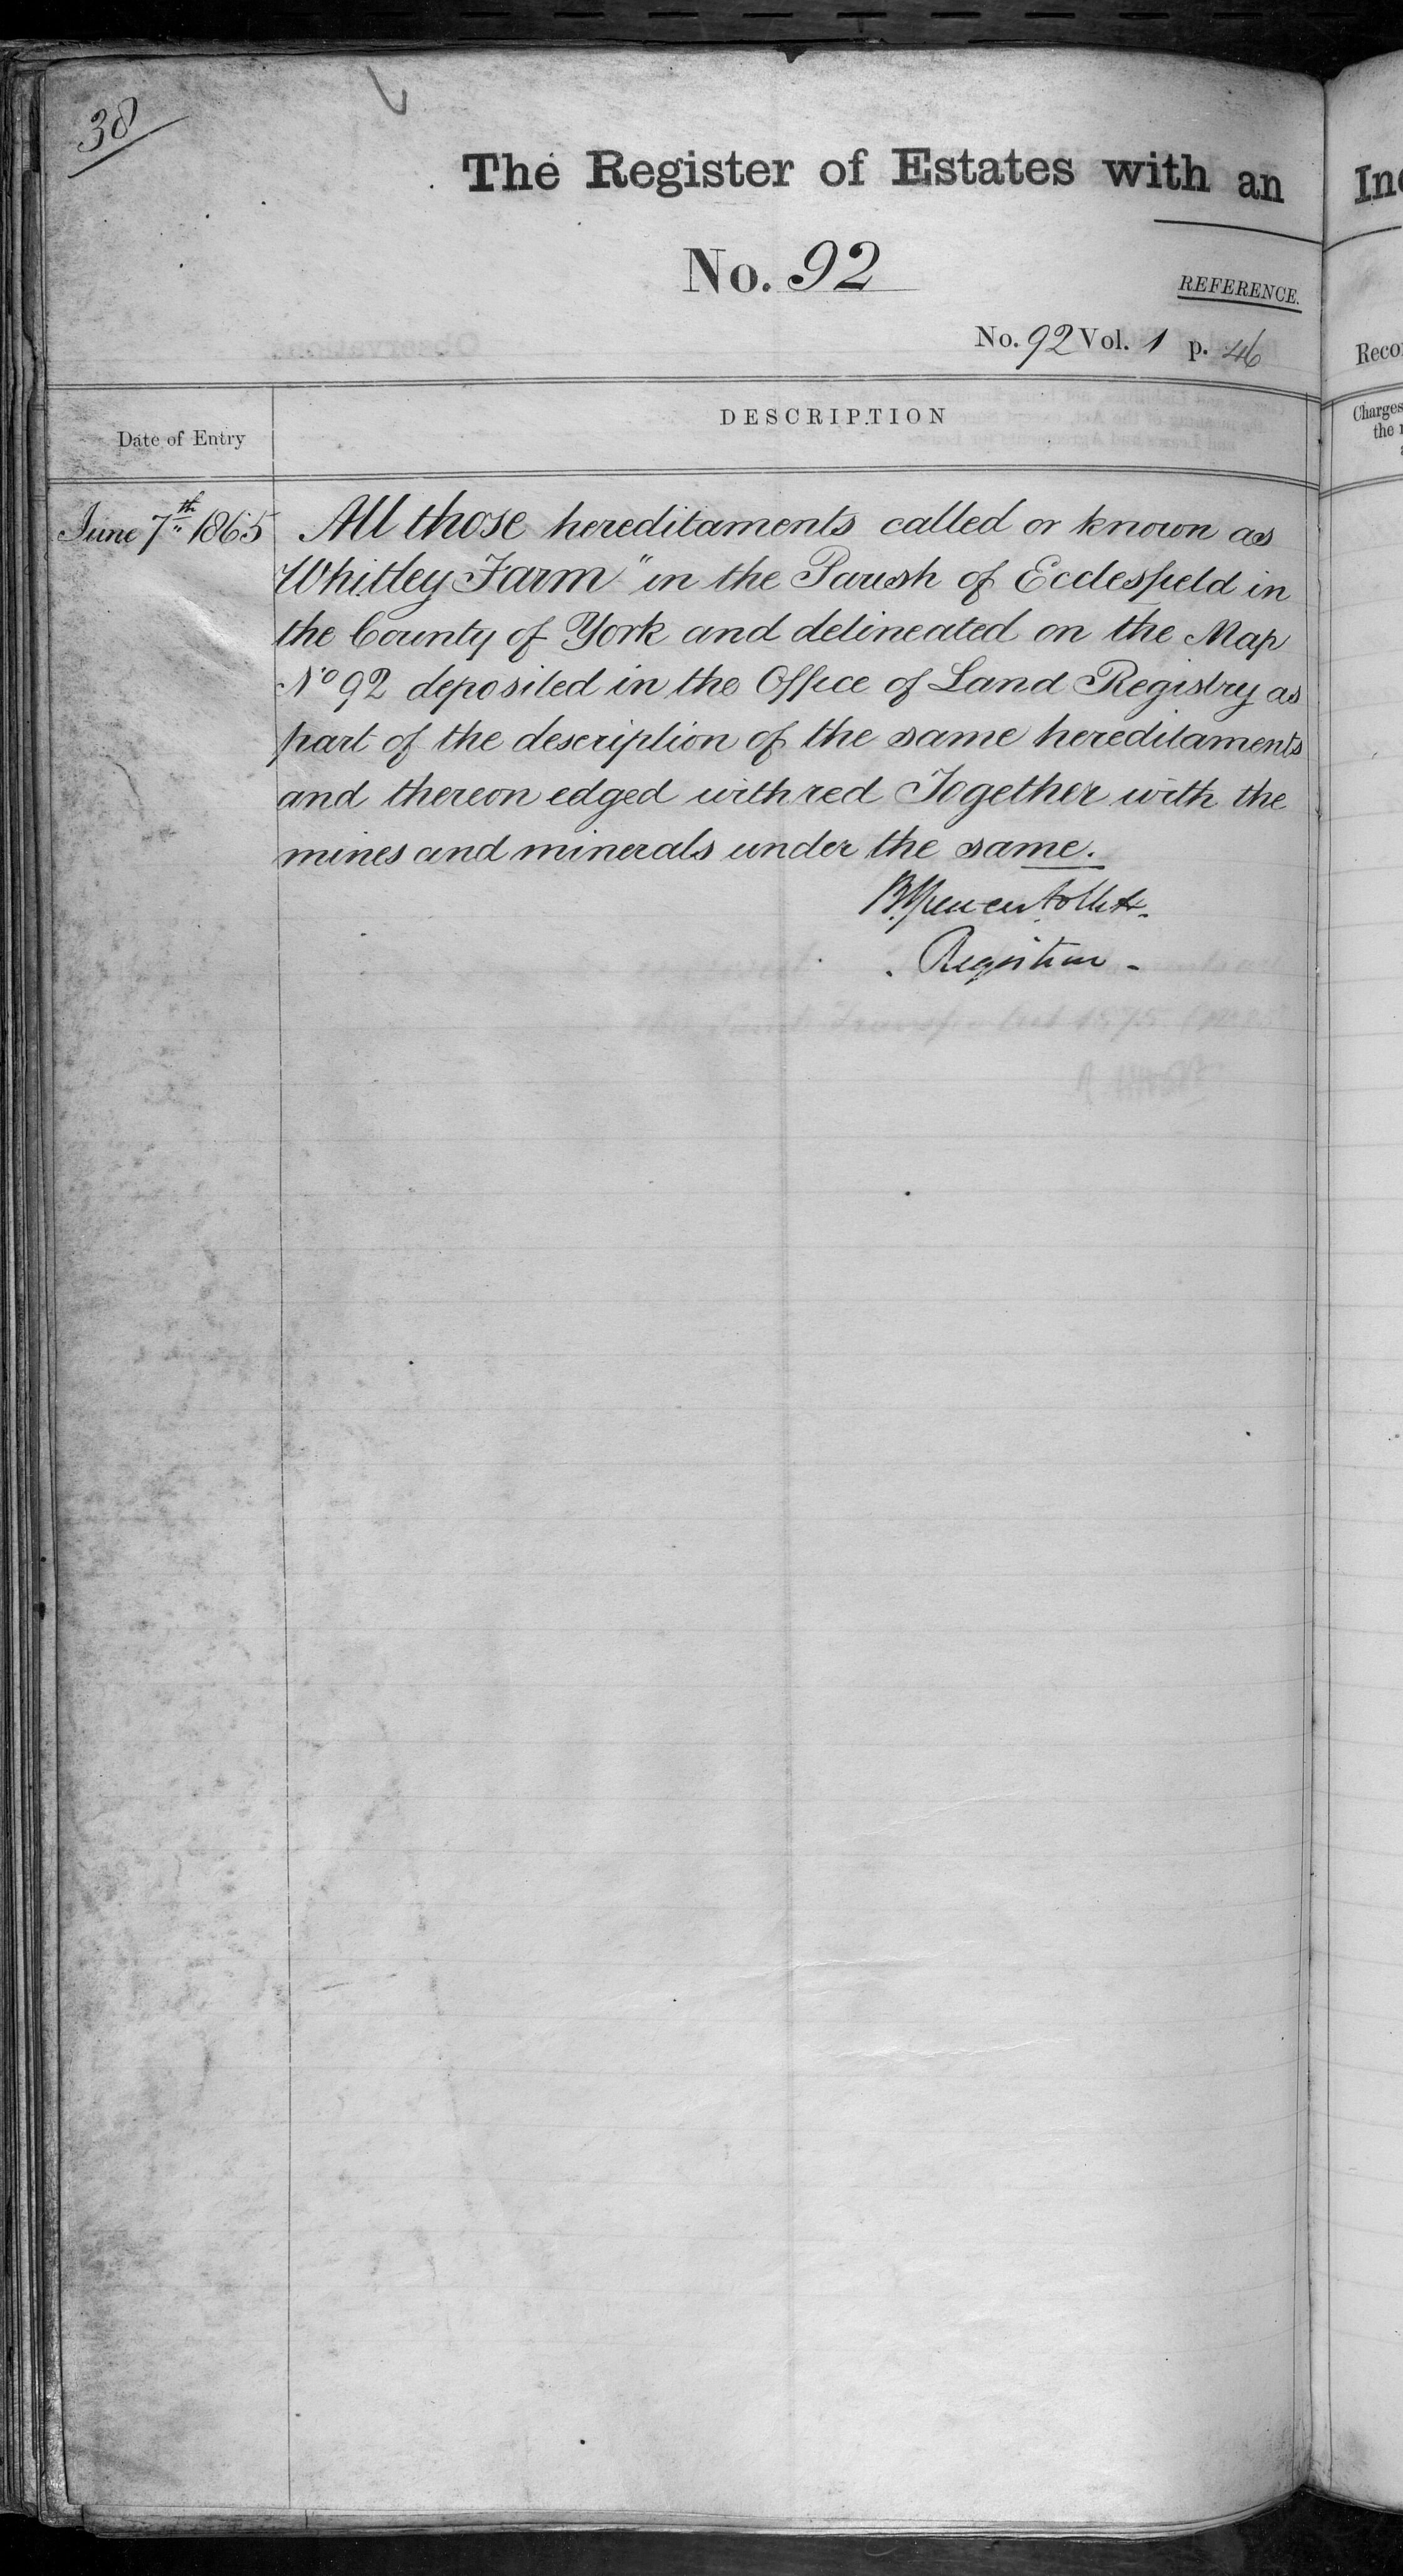 38
The Register of Estates with an
No. 92
REFERENCE.
No. 92 Vol. 1 p. 46
Date of Entry
DESCRIPTION
June 7th 1865
All those hereditaments called or known as
"Whitley Farm" in the Parish of Ecclesfield in
the County of York and delineated on the Map
No 92 deposited in the Office of Land Registry as
part of the description of the same hereditaments
and thereon edged with red Together with the
mines and minerals under the same.
Registrar
Reco
Charges
the